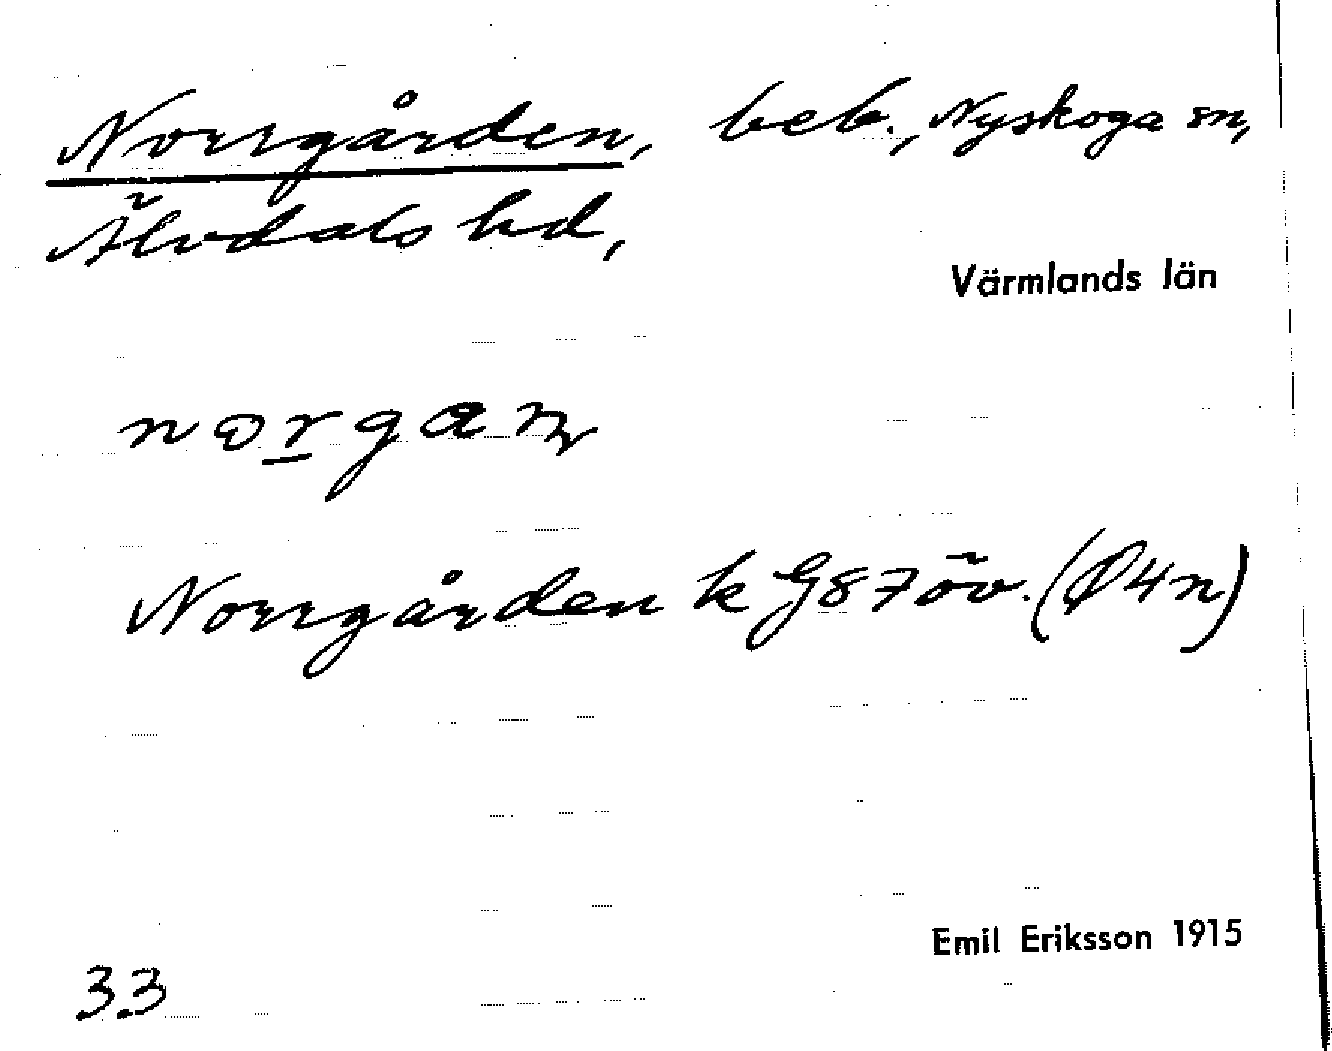 Norrgården, beb., Nyskoga sn,
Älvdals hd,
Värmlands län
Norrgården k G87öv. (Ø4n)
Emil Eriksson 1915
33